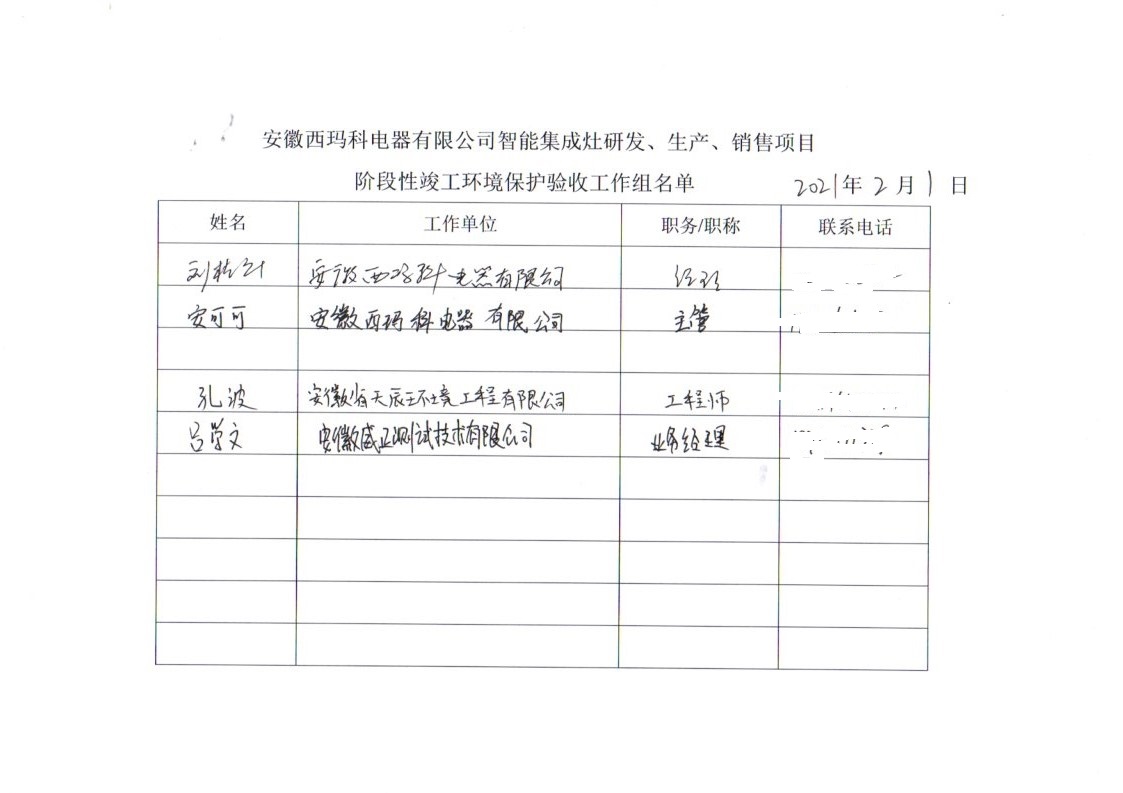 安徽西玛科电器有限公司智能集成灶研发、生产、销售项目
阶段性竣工环境保护验收工作组名单 2021年2月1日
姓名 工作单位 职务/职称 联系电话
安徽西玛科电器有限公司 经理
安可可 安徽西玛科电器有限公司 主管
孔波 安徽省天辰环境工程有限公司 工程师
吕学文 安徽威正测试技术有限公司 业务经理